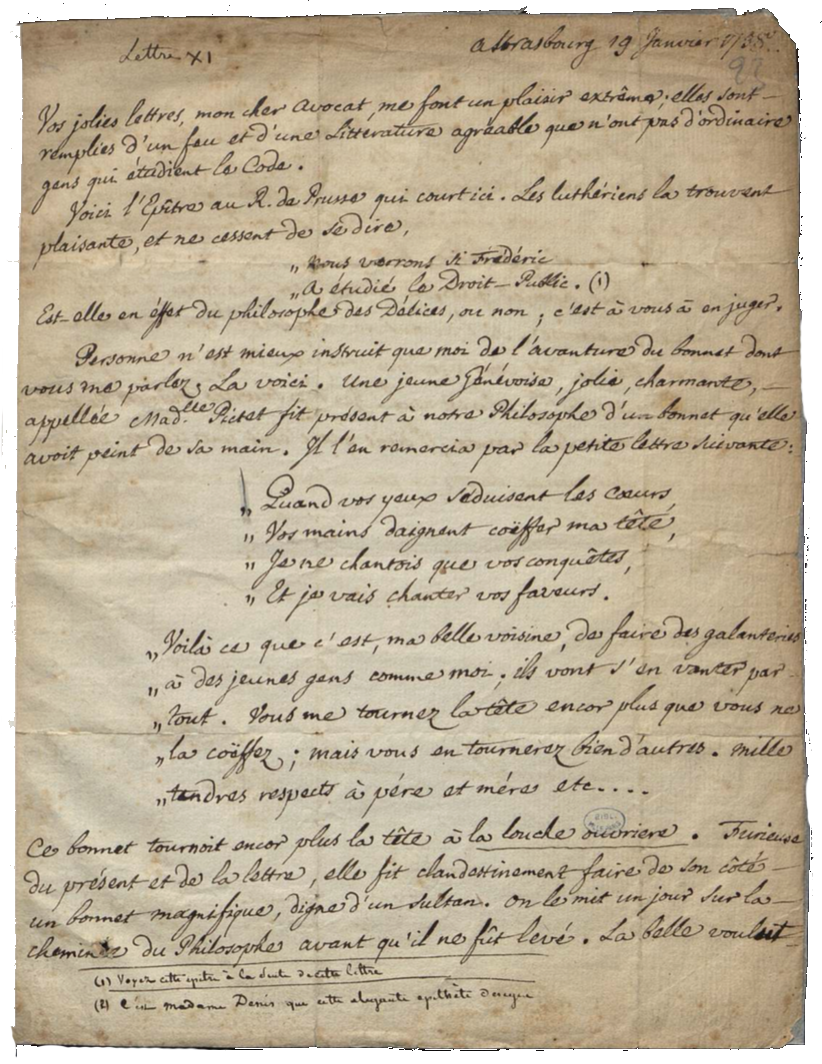 Lettre XI
a Strasbourg 19 Janvier 1758.
92
Vos jolies lettres, mon cher Avocat, me font un plaisir extrême; elles sont
remplies d'un feu et d'une Littérature agréable que n'ont pas d'ordinaire
gens qui étudient le Code.
Voici l'Epître au R. de Prusse qui court ici. Les luthériens la trouvent
plaisante, et ne cessent de se dire,
„ vous verrons si Frédéric
„ A étudié le Droit-Public. (1)
Est-elle en éffet du philosophe des Délices, ou non; c'est à vous à en juger.
Personne n'est mieux instruit que moi de l'avanture du bonnet dont
vous me parlez; La voici. Une jeune Génévoise, jolie, charmante,
appellée Mad.lle Pictet fit présent à notre Philosophe d'un bonnet qu'elle
avoit peint de sa main. Il l'en remercia par la petite lettre suivante:
„ Quand vos yeux séduisent les cœurs,
„ Vos mains daignent coëffer ma tête,
„ Je ne chantois que vos conquêtes,
„ Et je vais chanter vos faveurs.
„ Voilà ce que c'est, ma belle voisine, de faire des galanteries
„ à des jeunes gens comme moi; ils vont s'en vanter par-
„ tout. Vous me tournez la tête encor plus que vous ne
„ la coëffez; mais vous en tournerez bien d'autres. mille
„ tendres respects à pére et mére etc....
Ce bonnet tournoit encor plus la tête à la louche ouvriere. Furieuse
du présent et de la lettre, elle fit clandestinement faire de son côté
un bonnet magnifique, digne d'un sultan. on le mit un jour sur la
cheminée du Philosophe avant qu'il ne fût levé. La belle vouloit
(1) Voyez cette epitre à la suite de cette lettre
(2) C'est madame Denis que cette élégante epithète designe